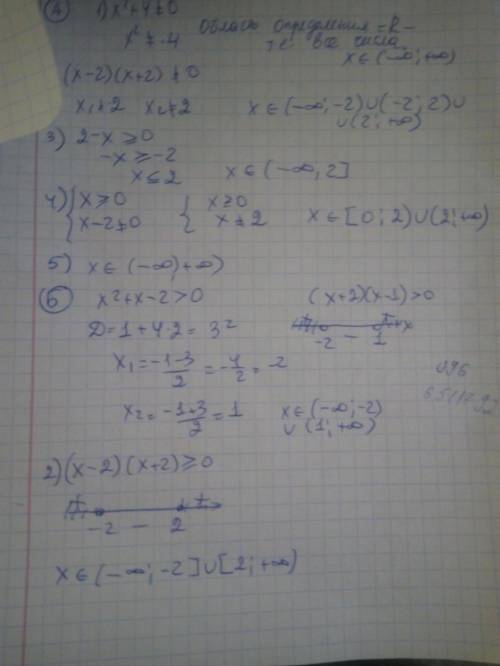 (4) 1) x²+4≠0
x²≠-4
Область определения =R-
т.е. все числа
x∈(-∞;+∞)
(x-2)(x+2)≠0
x₁≠2 x₂≠2
x∈(-∞;-2)∪(-2;2)∪
∪(2;+∞)
3) 2-x≥0
-x≥-2
x≤2 x∈(-∞,2]
4) {x≥0 {x≥0
{x-2≠0 {x≠2 x∈[0;2)∪(2;+∞)
5) x∈(-∞;+∞)
(6) x²+x-2>0 (x+2)(x-1)>0
D=1+4·2=3²
+ - + x
-2 1
x₁=(-1-3)/2=-4/2=-2
x₂=(-1+3)/2=1
x∈(-∞;-2)
∪(1;+∞)
2)(x-2)(x+2)≥0
+ - +
-2 2
x∈(-∞;-2]∪[2;+∞)